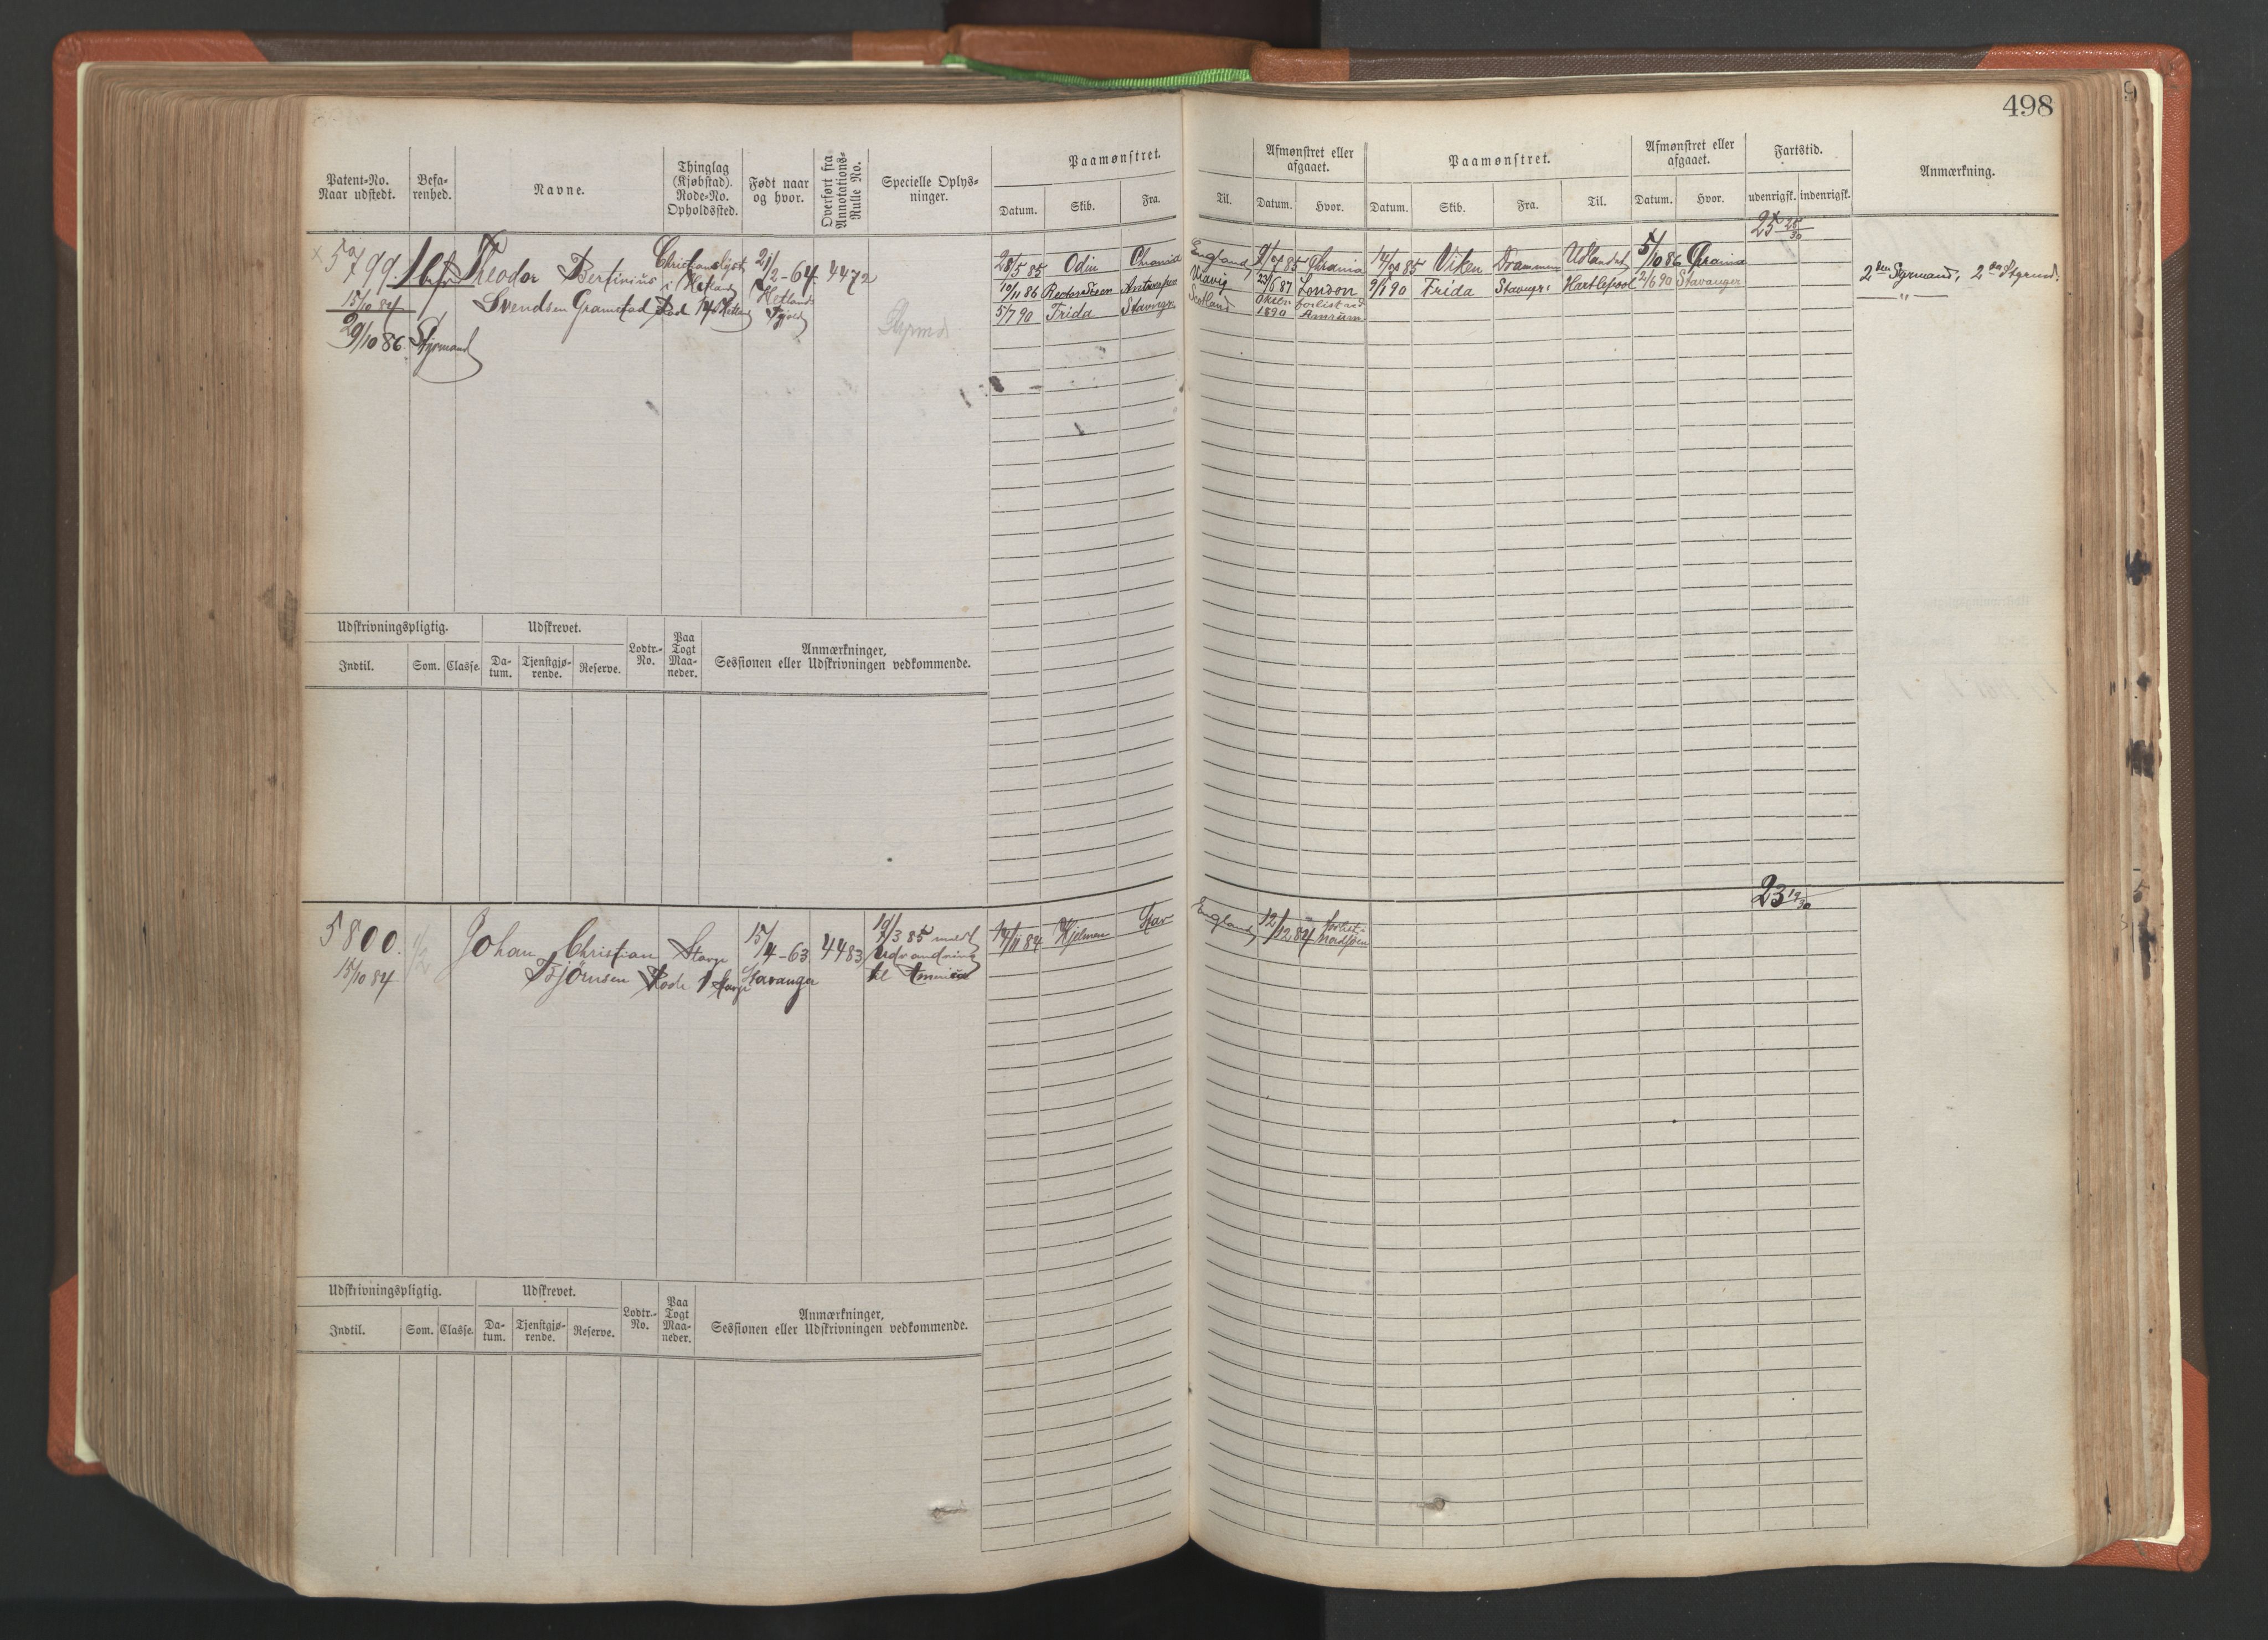 498
Patent-No. Naar udstedt. Befarenhed. Navne. Thinglag (Kjøbstad). Rode-No. Opholdssted. Født naar og hvor. Overført fra Annotations-Rulle No. Specielle Oplysninger. Paamønstret. Afmønstret eller afgaaet. Paamønstret. Afmønstret eller afgaaet. Fartstid. Anmærkning.
Datum. Skib. Fra. Til. Datum. Hvor. Datum. Skib. Fra. Til. Datum. Hvor. udenrigsk. indenrigsk.
25 25/30
5799. Theodor Bertinius 21/2-64 4472 28/5 85 Odin England 85 85 Viken Drammen Udlandet 5/10 86
15/10 84 Svendsen Gramstad Hetland 10/11 86 Antwerpen 23/6 87 London 9/1 90 Frida Stavangr. Hartlepool 2/6 90 Stavanger 2den Styrmand, 2den Styrmd.
29/10 86 Styrmand Styrmd. 5/7 90 Frida Stavangr. Scotland 1890 forlist ved Amrum "
Udskrivningspligtig. Udskrevet. Lodtr.-No. Paa Togt Maaneder. Anmærkninger, Sessionen eller Udskrivningen vedkommende.
Indtil. Som. Classe. Datum. Tjenstgjørende. Reserve.
23 19/30
5800. 1/2 Johan Christian Stavgr 15/4-63 4483 10/3 85 meldt 14/11 84 Hjelmen Stav England 12/12 84 forlist i Nordsjøen
15/10 84 Bjørnsen Rode 1 Stavgr Stavanger Udvandring
til Amerika
Udskrivningspligtig. Udskrevet. Lodtr.-No. Paa Togt Maaneder. Anmærkninger, Sessionen eller Udskrivningen vedkommende.
Indtil. Som. Classe. Datum. Tjenstgjørende. Reserve.